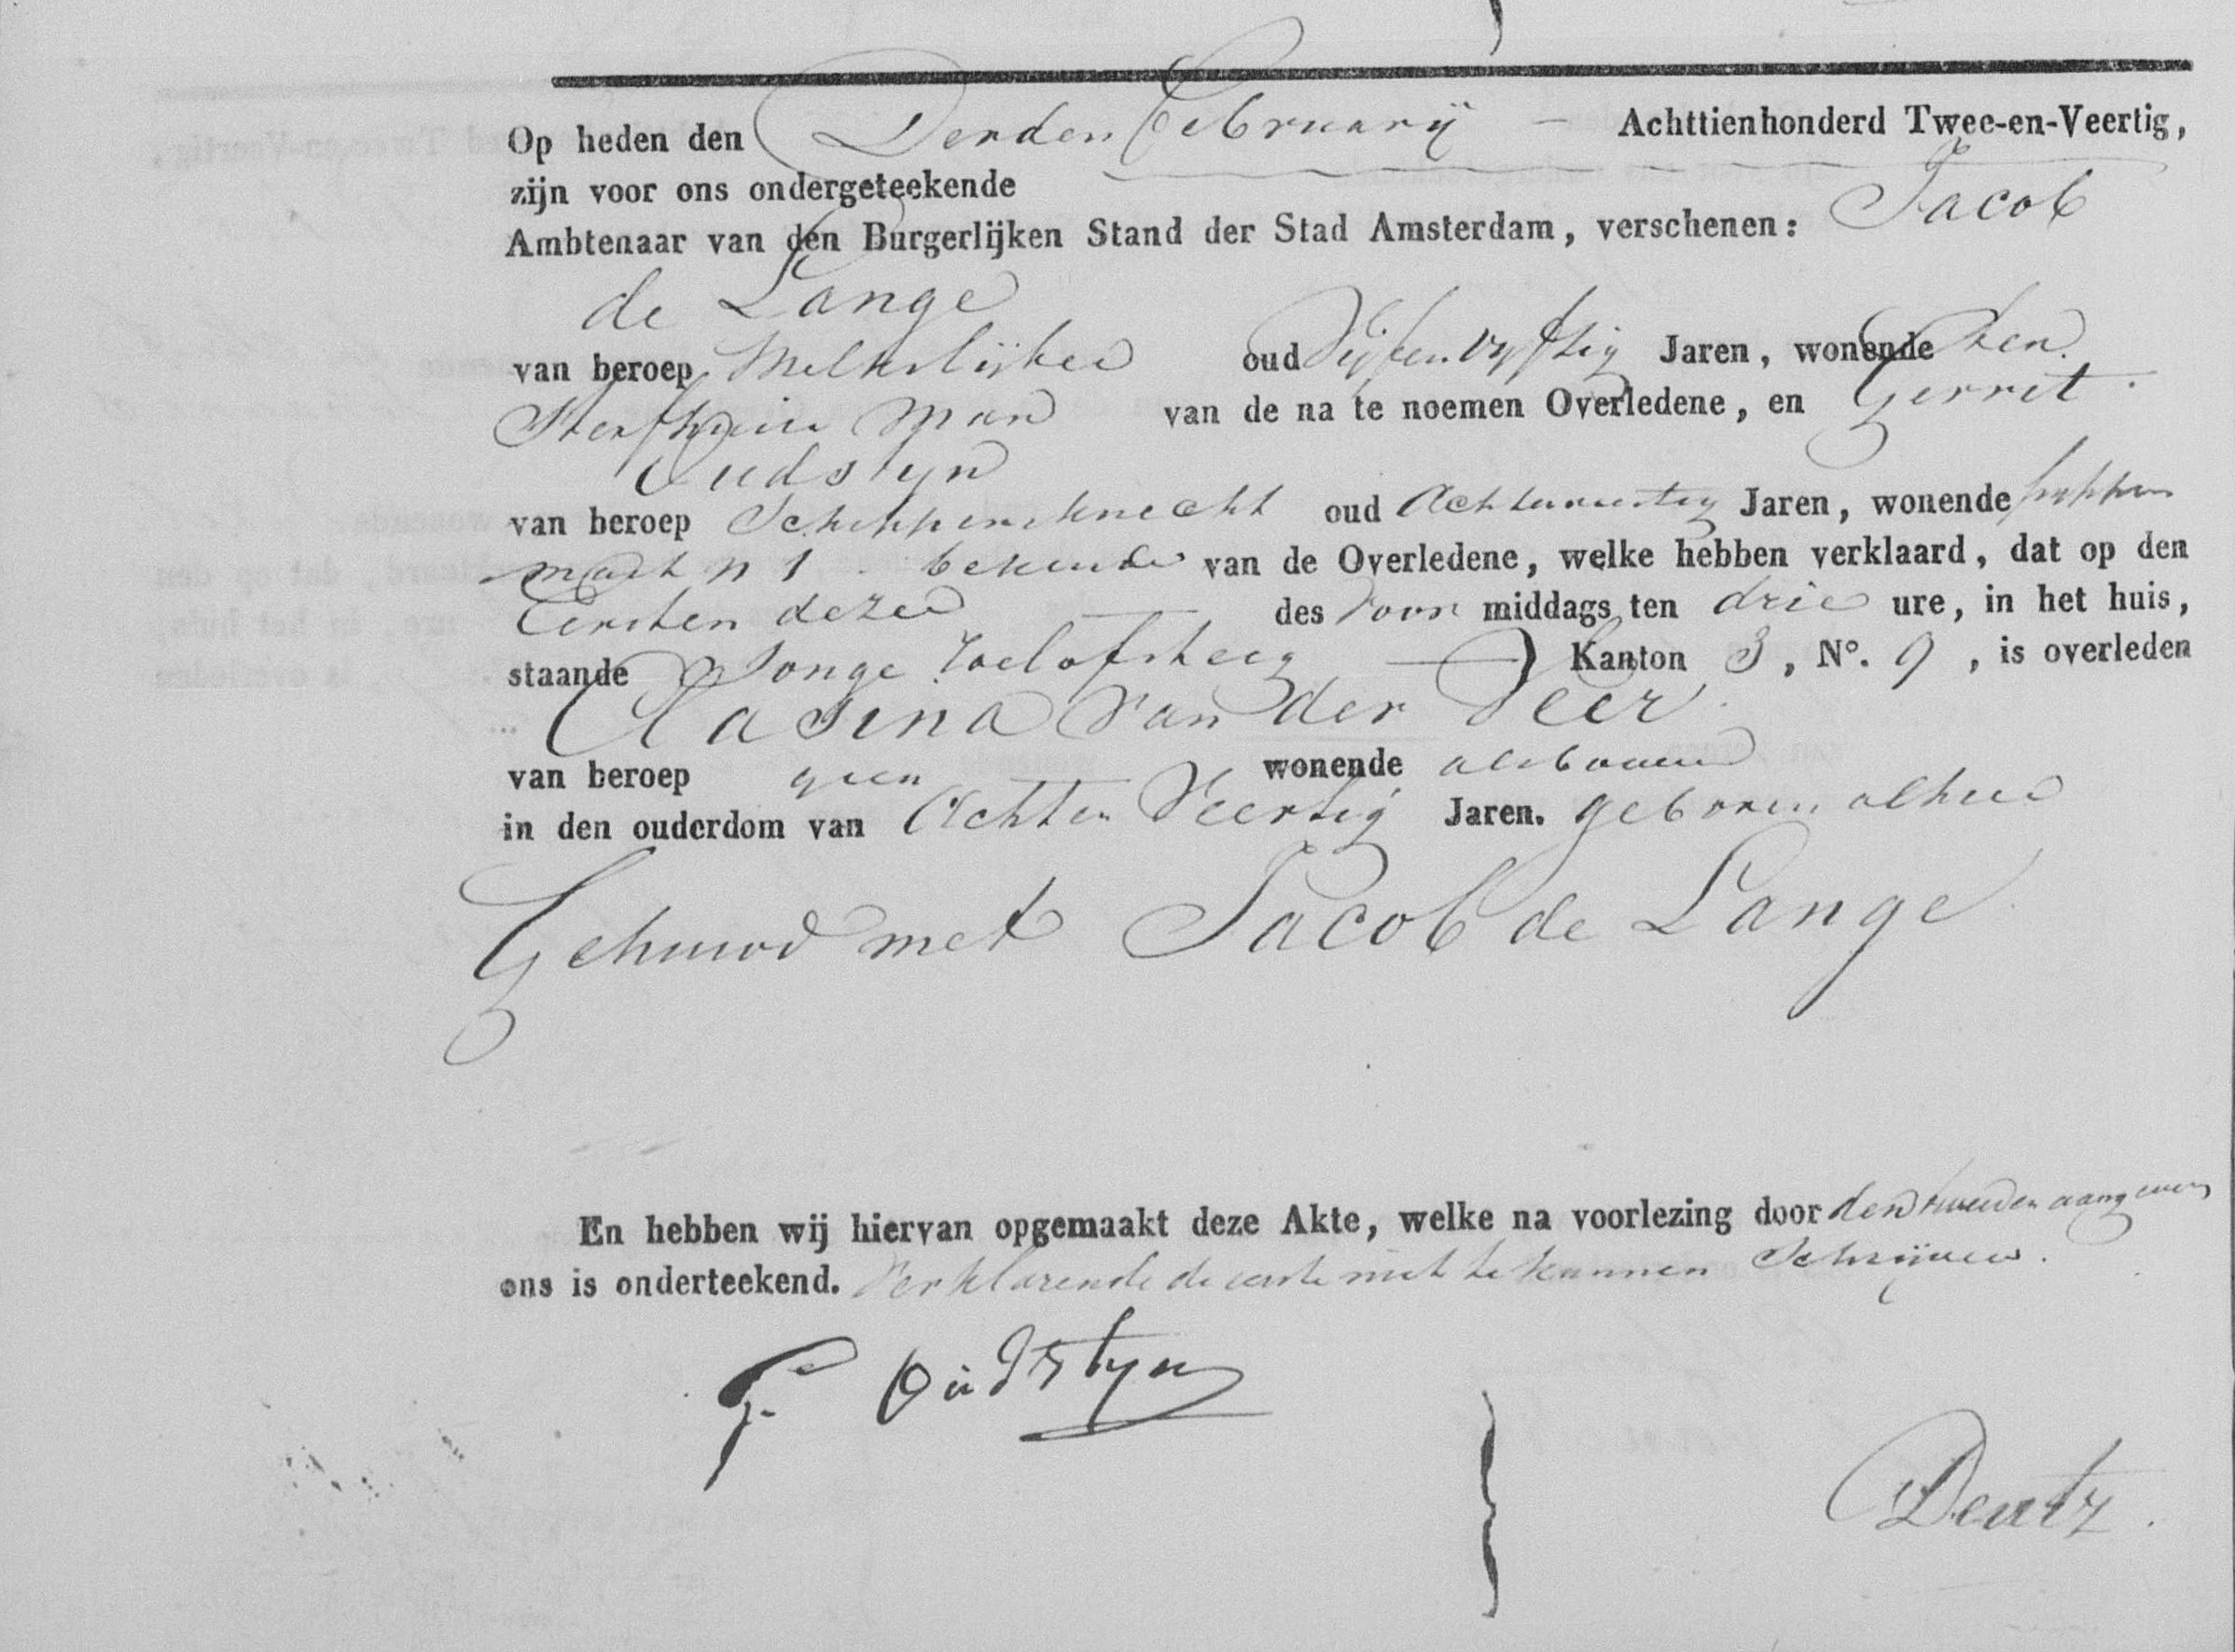 Op heden den Derden February Achttienhonderd Twee-en-Veertig,
zijn voor ons ondergeteekende
Ambtenaar van den Burgerlijken Stand der Stad Amsterdam, verschenen: Jacob
de Lange
van beroep Melkslijter oud Vijfen Vyftig Jaren, wonende ten
Sterfhuise Man van de na te noemen Overledene, en Gerrit
Oudstyn
van beroep Schippersknecht oud Achtenveertig Jaren, wonende
markt n 1 bekende van de Overledene, welke hebben verklaard, dat op den
Eersten dezer des Voor middags ten drie ure, in het huis,
staande Jonge Roelofsteeg Kanton 3, N°. 9, is overleden
Clasina van der Veer
van beroep geen wonende alsboven
in den ouderdom van Achten Veertig Jaren. geboren alhier
Gehuwd met Jacob de Lange
En hebben wij hiervan opgemaakt deze Akte, welke na voorlezing door den tweeden aangever
ons is onderteekend. Verklarende de eerste niet te kunnen Schrijven.
G. Oudstyn
Deutz